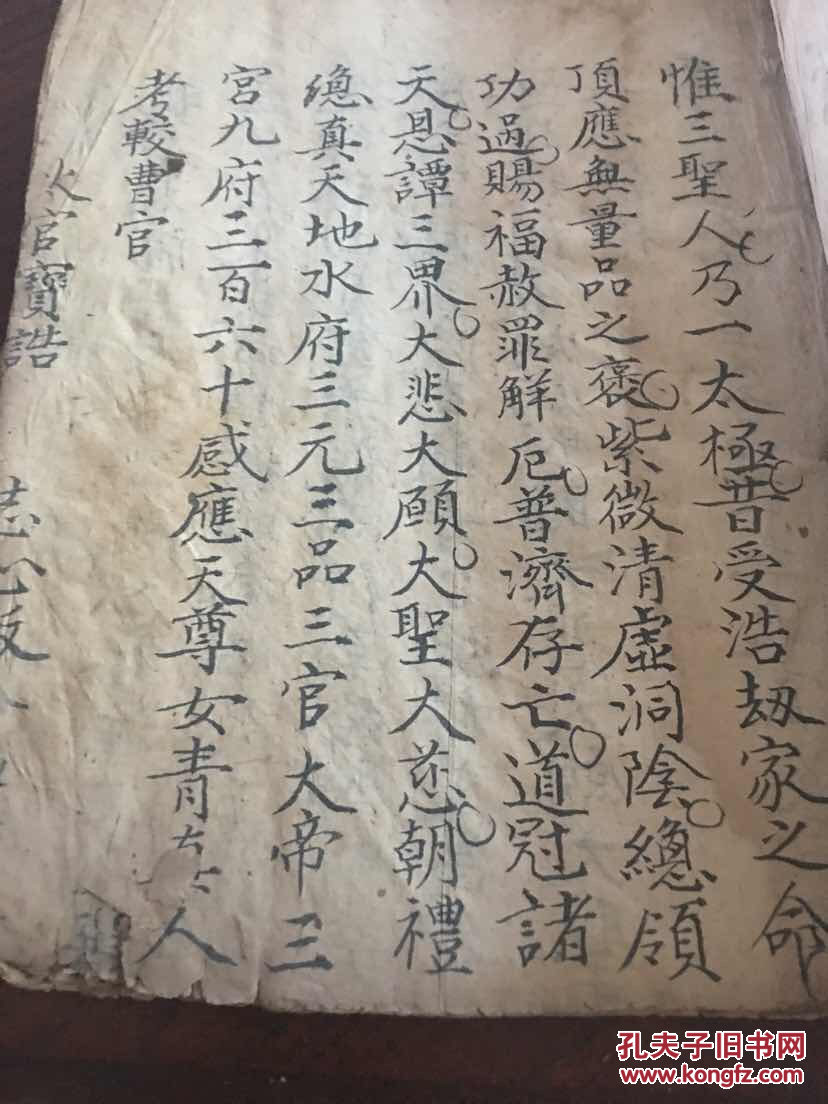 惟三聖人乃一太極昔受浩劫家之命
頂應無量品之褒紫微清虛洞陰總領
功過賜福赦罪解厄普濟存亡道冠諸
天恩譚三界大悲大願大聖大慈朝禮
總真天地水府三元三品三官大帝三
宮九府三百六十感應天尊女青人
考較曹官
火官寶誥
志心
孔夫子旧书网
www.kongfz.com